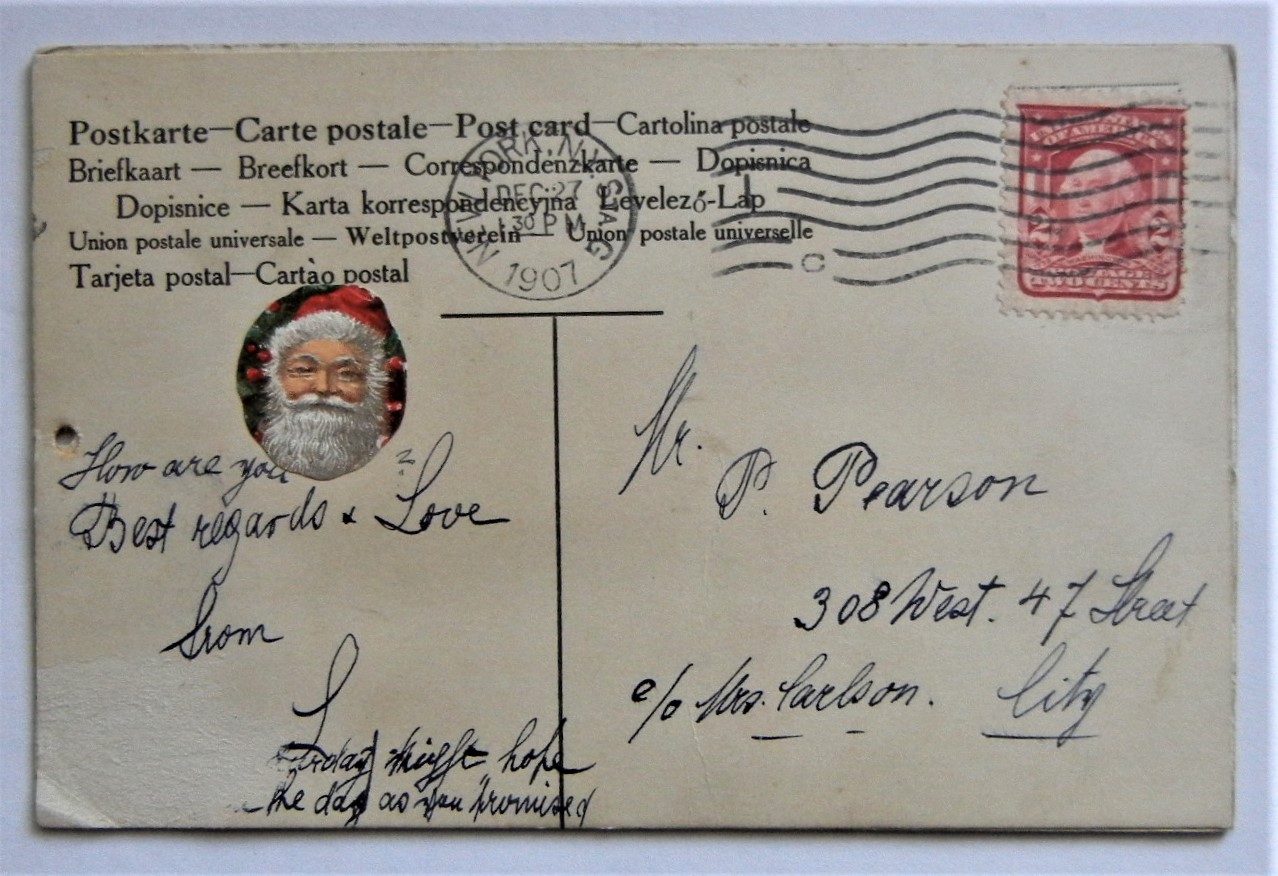 Postkarte—Carte postale—Post card—Cartolina postale
Briefkaart — Breefkort — Correspondenzkarte — Dopisnica
Dopisnice — Karta korrespondencyjna Levelező-Lap
Union postale universale — Weltpostverein — Union postale universelle
Tarjeta postal—Cartào postal
NEW YORK, N.Y. STA. G
DEC 27
1 30 PM
1907
C
UNITED STATES
OF AMERICA
2 2
TWO CENTS
How are you ?
Best regards & Love
from
L
hope
the day as you promised
Mr.
P. Pearson
308 West. 47 Street
c/o Mrs. Carlson. City